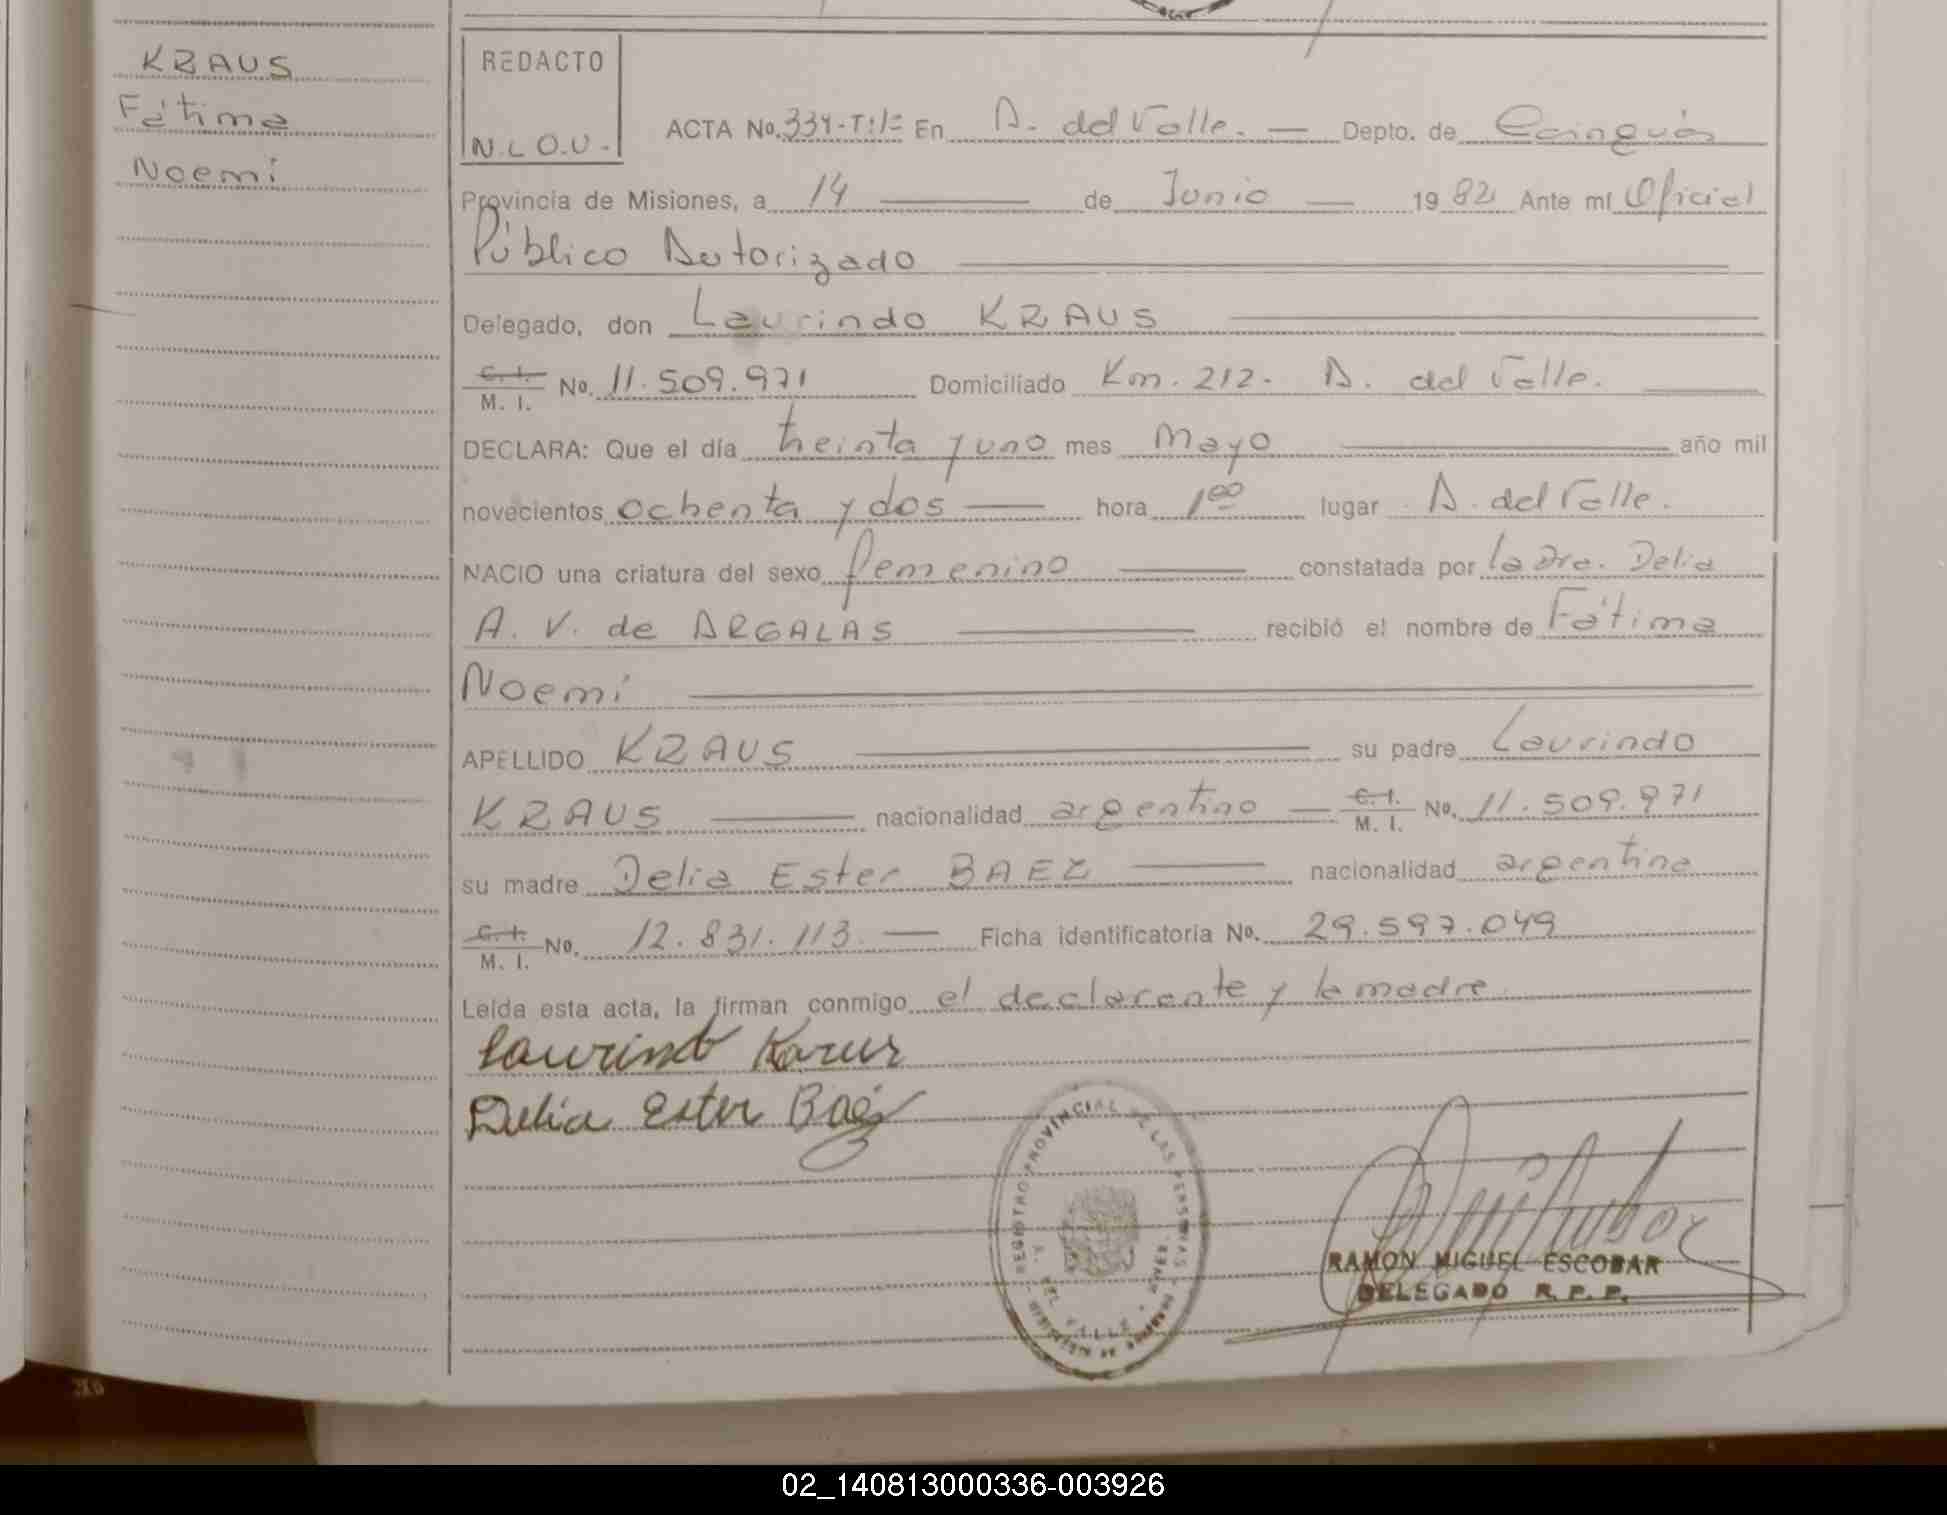 KRAUS
Fátima
Noemí
REDACTO
N.L.O.U.-
ACTA No. 334-T:1= En A. del Valle. — Depto. de Cainguás
Provincia de Misiones, a 14 — de Junio — 1982 Ante mí Oficial
Público Autorizado
Delegado, don Laurindo KRAUS
C. I. M. I. No. 11.509.971 Domiciliado Km. 212. A. del Valle.
DECLARA: Que el día treinta y uno mes Mayo año mil
novecientos ochenta y dos — hora 1⁰⁰ lugar A. del Valle.
NACIO una criatura del sexo femenino constatada por la Dra. Delia
A. V. de ARGALAS recibió el nombre de Fátima
Noemí
APELLIDO KRAUS su padre Laurindo
KRAUS nacionalidad argentino — C. I. M. I. No. 11.509.971
su madre Delia Ester BAEZ nacionalidad argentina
C. I. M. I. No. 12.831.113. — Ficha identificatoria No. 29.597.049
Leída esta acta, la firman conmigo el declarante y la madre.
Laurindo Karus
Delia Ester Baéz
REGISTRO PROVINCIAL DE LAS PERSONAS
A. DEL VALLE
RAMON MIGUEL ESCOBAR
DELEGADO R. P. P.
02_140813000336-003926